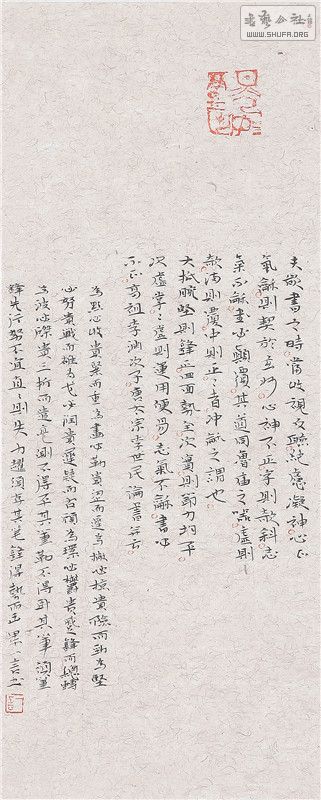 夫欲書之時當收視反聽絕慮凝神心正
氣和則契於玄妙心神不正字則欹斜志
氣不和書必顛覆其道同魯廟之器虛則
欹滿則覆中則正正者沖和之謂也
大抵腕豎則鋒正四面勢全次實指指實則節力均平
次虛掌掌虛則運用便易志氣不和書必
不正
唐太宗李世民論書
為點必收貴緊而重為畫必勒貴澀而遲為撇必掠貴險而勁為豎
必努貴戰而雄為戈必潤貴遲疑而右顧為環必鬱貴蹙鋒而總轉
為波必磔貴三折而遣毫側不得平其筆勒不得臥其筆須筆
鋒先行努不宜直直則失力趯須存其筆鋒得勢而出
書藝公社
WWW.SHUFA.ORG